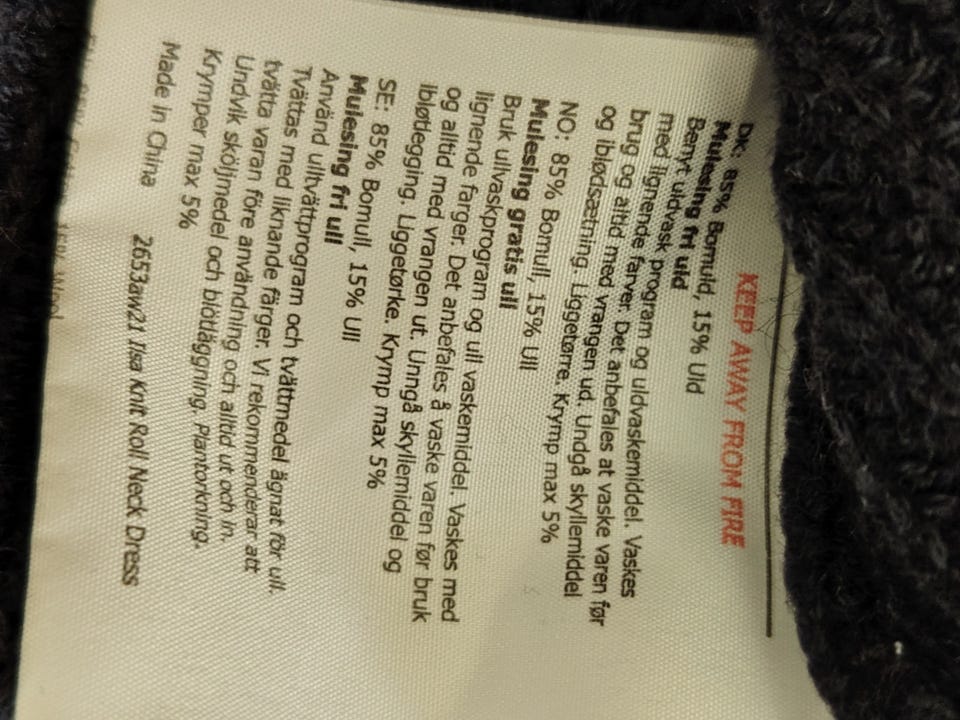 KEEP AWAY FROM FIRE
DK: 85% Bomuld, 15% Uld
Mulesing fri uld
Benyt uldvask program og uldvaskemiddel. Vaskes
med lignende farver. Det anbefales at vaske varen før
brug og altid med vrangen ud. Undgå skyllemiddel
og iblødsætning. Liggetørre. Krymp max 5%
NO: 85% Bomull, 15% Ull
Mulesing gratis ull
Bruk ullvaskprogram og ull vaskemiddel. Vaskes med
lignende farger. Det anbefales å vaske varen før bruk
og alltid med vrangen ut. Unngå skyllemiddel og
ibløtlegging. Liggetørke. Krymp max 5%
SE: 85% Bomull, 15% Ull
Mulesing fri ull
Använd ulltvättprogram och tvättmedel ägnat för ull.
Tvättas med liknande färger. Vi rekommenderar att
tvätta varan före användning och alltid ut och in.
Undvik sköljmedel och blötläggning. Plantorkning.
Krymper max 5%
Made in China 2653aw21 Ilsa Knit Roll Neck Dress
15% Wool